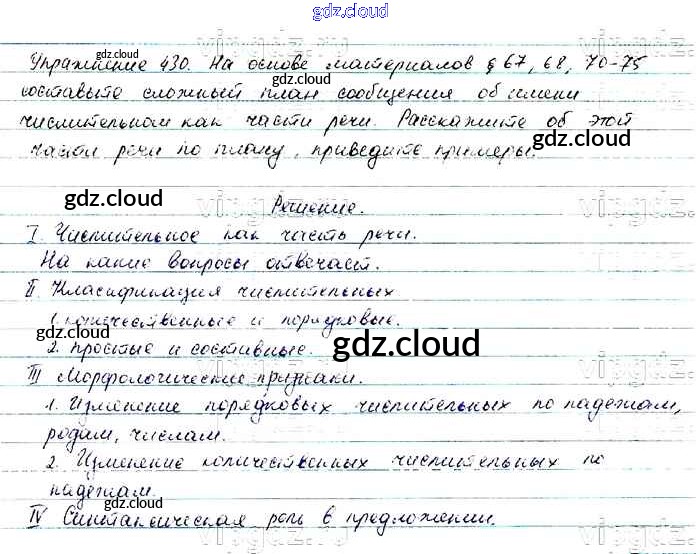 gdz.cloud
Упражнение 430. На основе материалов § 67, 68, 70-75
составьте сложный план сообщения об имени
числительном как части речи. Расскажите об этой
части речи по плану, приведите примеры.
gdz.cloud
gdz.cloud
gdz.cloud
gdz.cloud
gdz.cloud
Решение.
gdz.cloud
gdz.cloud
I. Числительное как часть речи.
На какие вопросы отвечает.
gdz.cloud
II. Класификация числительных
1. количественные и порядковые.
gdz.cloud
2. простые и составные.
gdz.cloud
III Морфологические признаки.
gdz.cloud
1. Изменение порядковых числительных по падежам,
родам, числам.
gdz.cloud
2. Изменение количественных числительных по
падежам.
gdz.cloud
IV Синтаксическая роль в предложении.
gdz.cloud